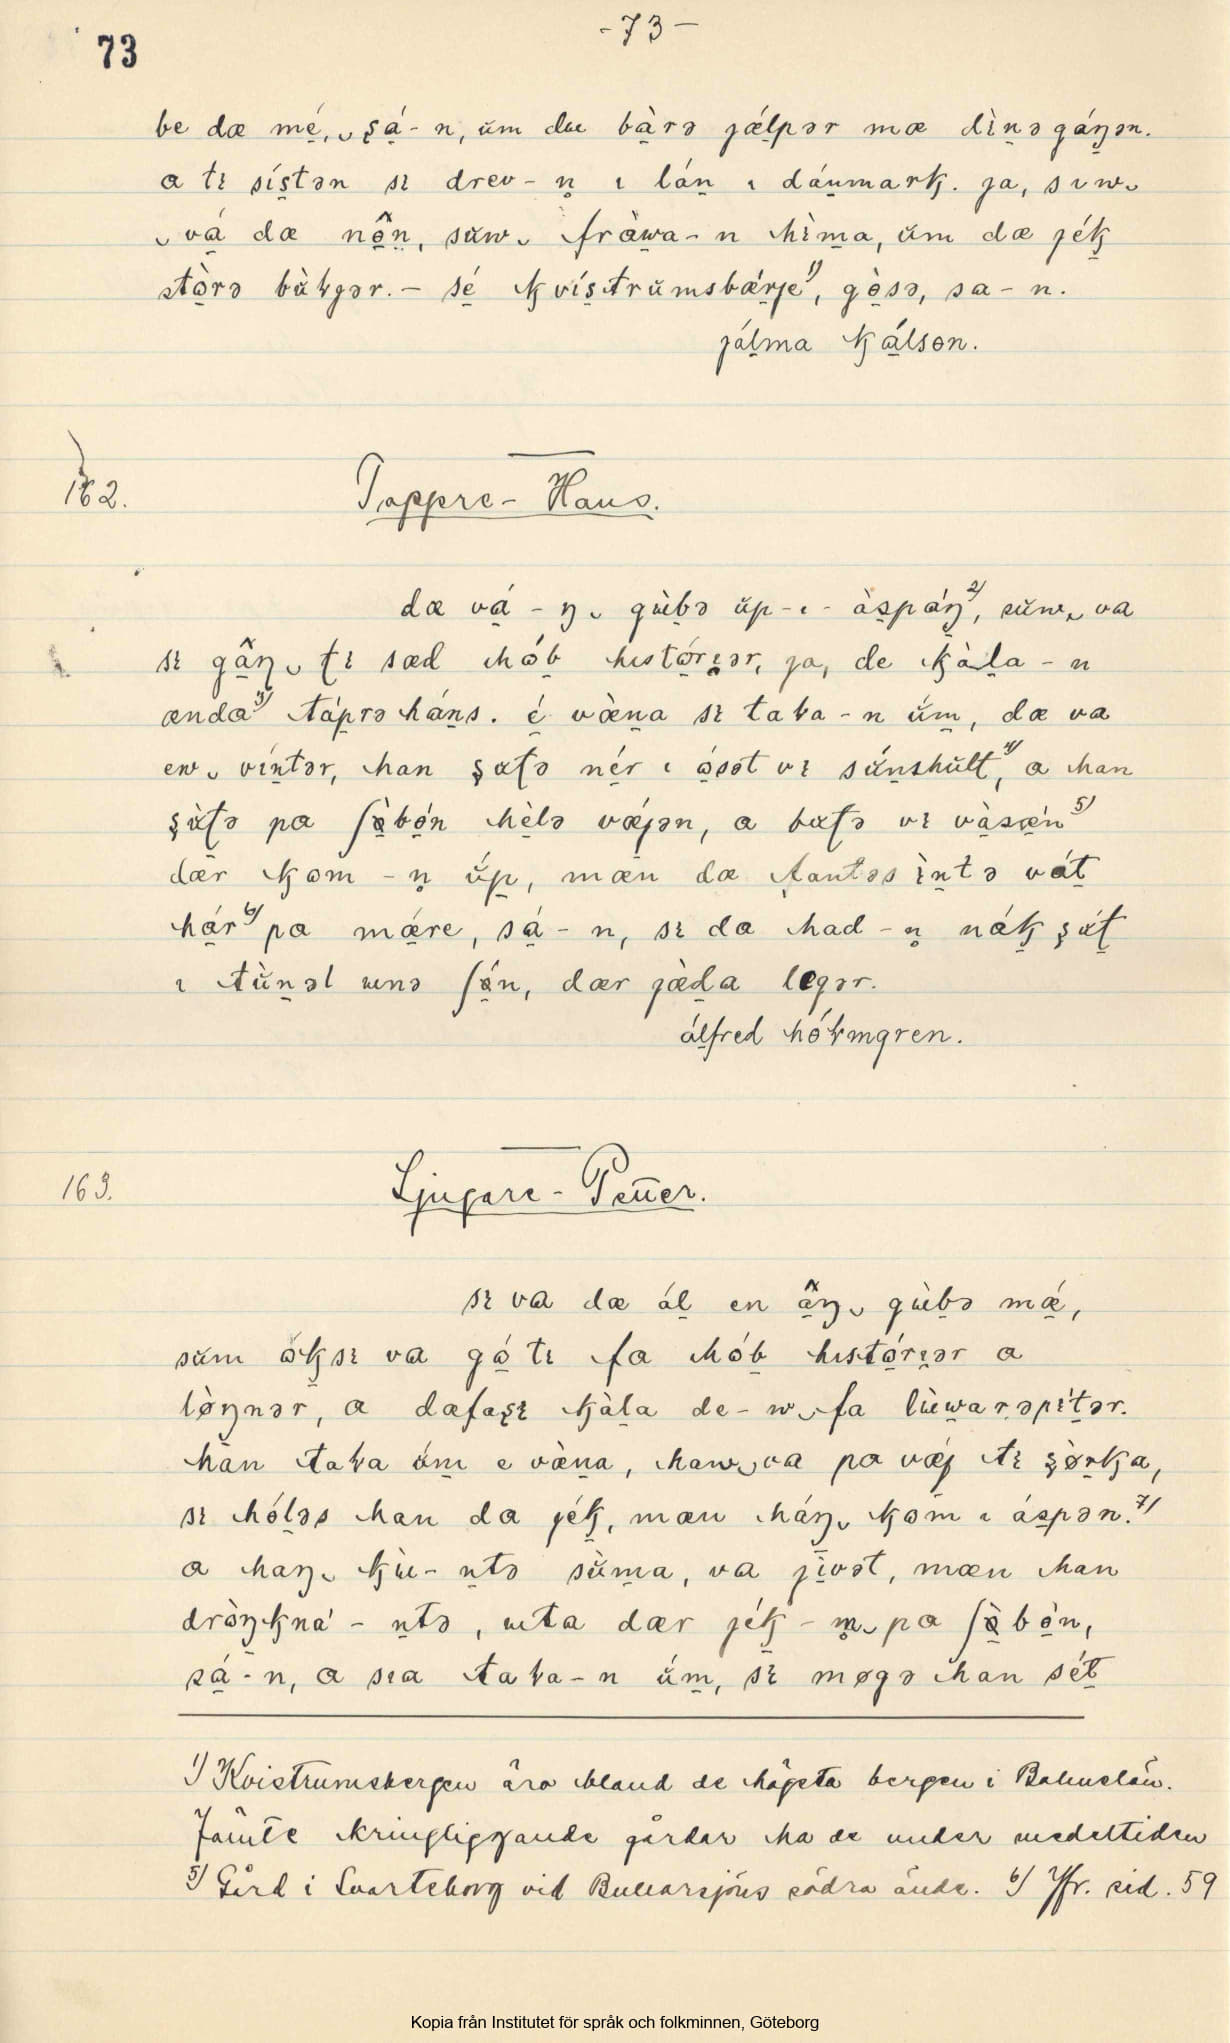 73
-73-
be dæ mé̱, ˬ ʂá̱-n, ŭm dæ bà̱rə jǽḻpər mæ dìṉə gáŋən.
a tɪ síṣtən sɪ drev-n̥ ɪ láṉ ɪ dáṉmarꞣ. ja, sɪwˬ
ˬ vá̱ dæ nô̱n, sŭwˬ frà̱wa-n hìm̱a, ŭm dæ jéꞣ
stò̱rə bùꞎgər. – sé̱ ꞣvíṣtrŭmsbǽrje¹⁾, gò̱sə, sa-n.
jáḻma ꞣáḻson.
162.
Toppre-Hans.
dæ vá̱-ŋˬ gùḇə ŭp-ɪ-àṣpáŋ²⁾, sŭwˬ va
sɪ gâ̱ŋˬ tɪ sæd hóḇ hɪstó̱rɪər, ja, de ꞣàḻa-n
ænda³⁾ táp̱rə háṉs. é̱ væ̀ṉa sɪ taꞎa-n ŭ́m̱, dæ va
ewˬ víṉtər, han ʂɑtə né̱r ɪ ó̱sət vɪ sáṉshŭlt⁴⁾, a han
ʂɑ̀tə pa ʃø̱̀bó̱n hè̱lə vǽ̱jən, a bɑtə vɪ và̱sæ̱n⁵⁾
dær ꞣom-n̥ ŭ́p̱, mæn dæ tantəs ìṉtə vát̠
há̱r⁶⁾ pa mǽ̱re, sá̱-n, sɪ da had-n̥ nɑ́ꞣ ʂɑ́t̠
ɪ tŭ̀ṉəl unə ʃǿ̱n, dær jæ̀ḏa legər.
álfred hóꞎmgren.
163.
Ljugare-Petter.
sɪ va dæ áḻ en â̱ŋˬ gùḇə mǽ̱,
sŭm ɑ́ꞣsɪ va gó̱ tɪ fa hóḇ hɪstó̱rɪər a
lø̀ŋnər, a dæfaʂɪ ꞣàḻa de-wˬ fa lùwarəpɪ́ṯər.
han taꞎa ŭ́m̱ e væ̀ṉa, hawˬ va pa vǽ̱j tɪ ʂø̀rꞣa,
sɪ hóḻəs han da jéꞣ, mæn háŋˬ ꞣom ɪ áṣpən.⁷⁾
a haŋˬ ꞣù-ṉtə sŭ̀m̱a, va jìvət, mæn han
drɔ̀ŋꞣna-ṉtə, uta dær jéꞣ-m̥ˬ pa ʃø̱̀bó̱n,
sá̱-n, a sɪa taꞎa-n ŭ́m̱, sɪ møgə han sét̠
¹⁾ Kviströmsbergen äro bland de högsta bergen i Bohuslän.
Jämte kringliggande gårdar ha de under medeltiden
⁵⁾ Gård i Svarteborg vid Bullarsjöns södra ände. ⁶⁾ Jfr. sid. 59
Kopia från Institutet för språk och folkminnen, Göteborg